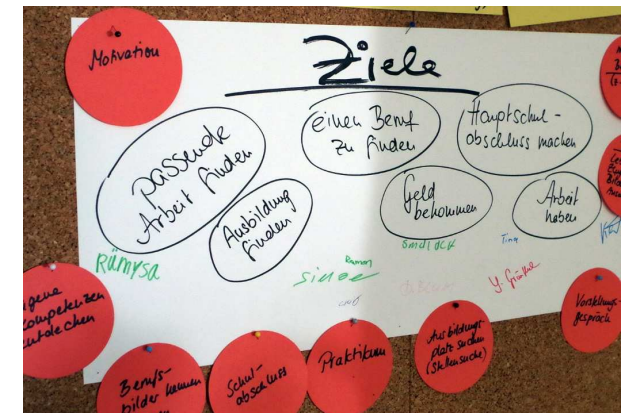 Motivation
Ziele
passende
Arbeit finden
einen Beruf
zu finden
Hauptschul-
abschluss machen
Ausbildung
finden
Geld
bekommen
Arbeit
haben
Rämysa
Ramon
Tina
eigene
Kompetenzen
entdecken
Berufs-
bilder kennen
Schul-
abschluss
Praktikum
Ausbildungs-
platz suchen
(Stellensuche)
Vorstellungs-
gespräch